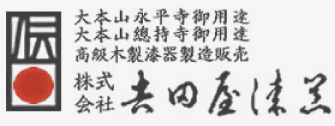 伝
大本山永平寺御用達
大本山總持寺御用達
高級木製漆器製造販売
株式会社 吉田屋漆器